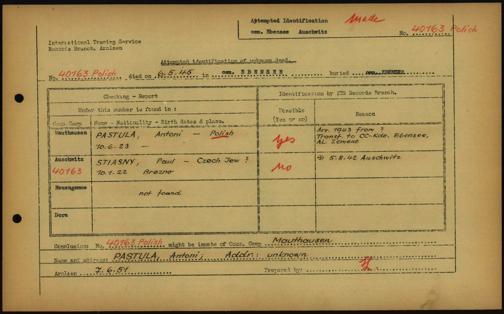 Attempted Identification made
cem. Ebensee Auschwitz
No. 40163 Polish
International Tracing Service
Records Branch, Arolsen
Attempted identification of unknown dead.
No. 40163 Polish died on 6.5.45 in cem. EBENSEE buried cem. EBENSEE
Checking - Report
Identification by ITS Records Branch.
Under this number is found in :
Possible
(Yes or no)
Reason
Conc. Camp Name - Nationality - Birth dates & place.
Mauthausen PASTULA, Antoni - Polish
10.6.23 —
yes
Arr. 1943 from ?
Transf. to CC-Kdo. Ebensee,
AL Zement
Auschwitz
40163
STIASNY, Paul - Czech Jew ?
10.1.22
no
5.8.42 Auschwitz
Neuengamme
not found
Dora
Conclusion No. 40163 Polish might be inmate of Conc. Camp Mauthausen
Name and address: PASTULA, Antoni; Addr: unknown
Arolsen 7.6.51 Prepared by: